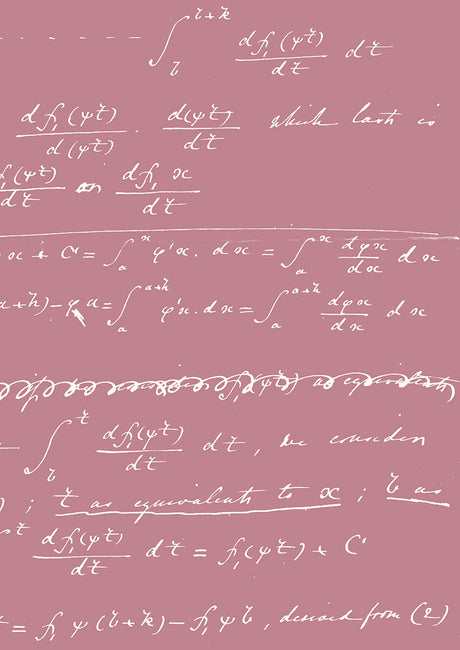 ∫_b^{b+k} df₁(ψt)/dt dt
df₁(ψt)/d(ψt) · d(ψt)/dt which last is
f₁(ψt)/dt or df₁x/dt
x + C = ∫_a^x φ'x. dx = ∫_a^x dφx/dx dx
a+h) − φa = ∫_a^{a+h} φ'x. dx = ∫_a^{a+h} dφx/dx dx
f₁(ψt) as equivalent
∫_b^t df₁(ψt)/dt dt, we consider
) ; t as equivalent to x ; b as
t df₁(ψt)/dt dt = f₁(ψt) + C
= f₁ ψ(b+k) − f₁ ψb, derived from (2)